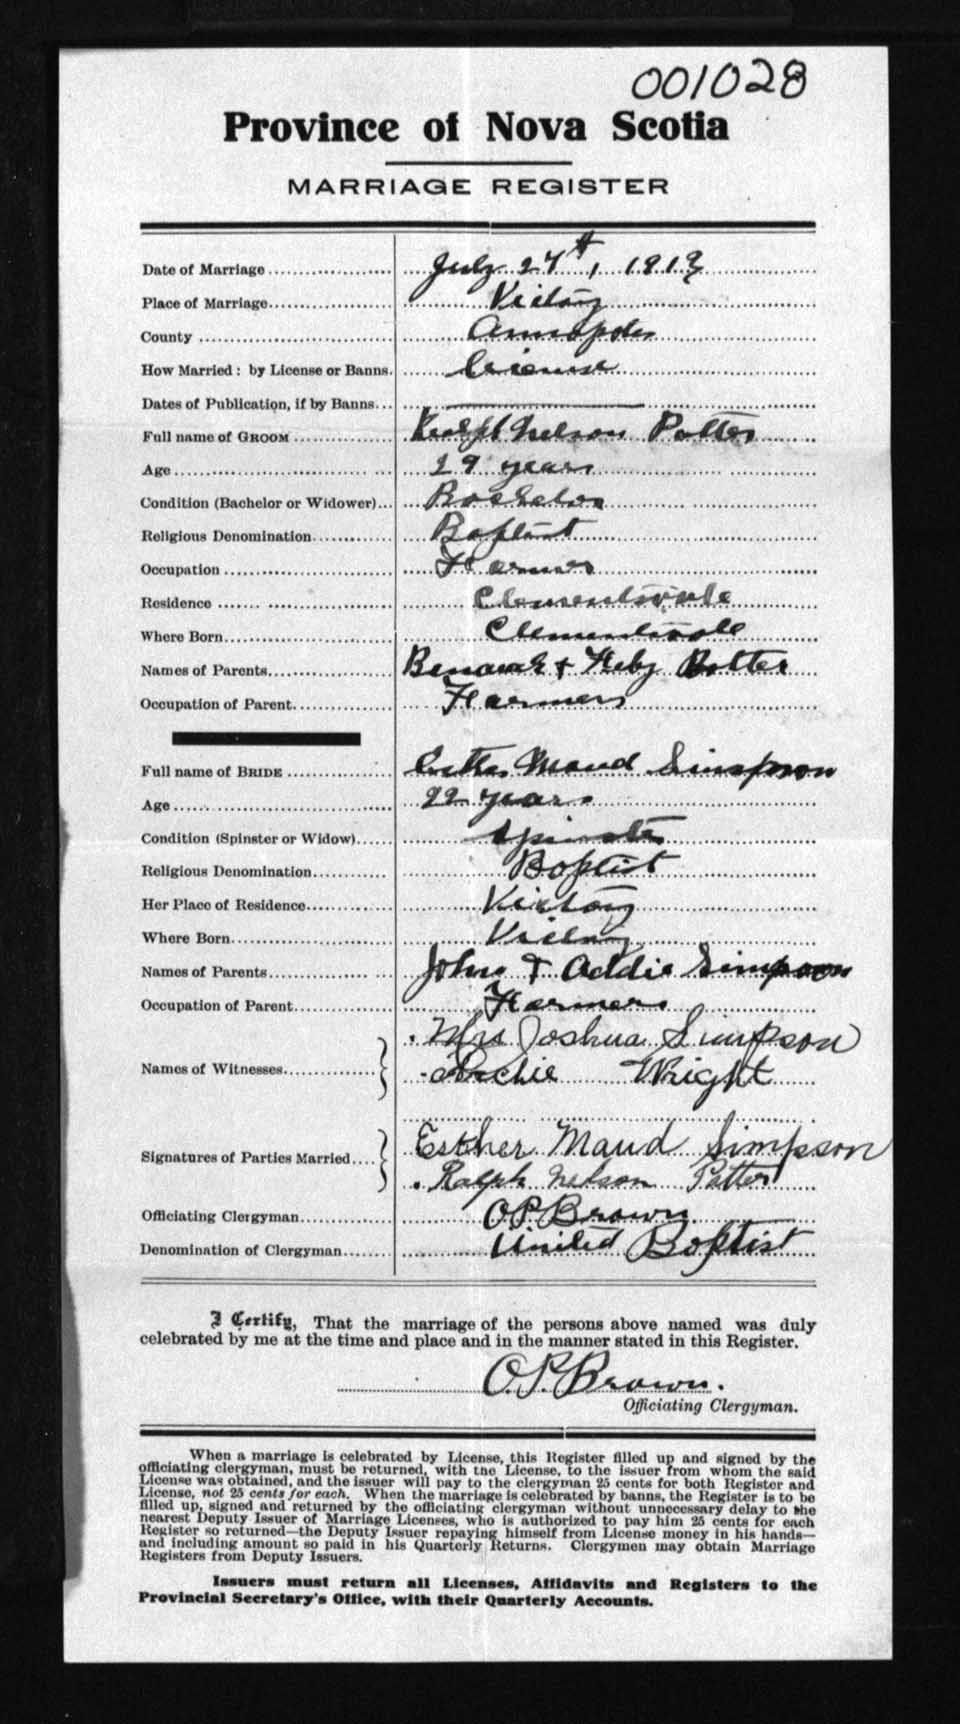 001028
Province of Nova Scotia
MARRIAGE REGISTER
Date of Marriage July 27th, 191
Place of Marriage Victory
County Annapolis
How Married: by License or Banns. License
Dates of Publication, if by Banns
Full name of GROOM Ralph Nelson Potter
Age 29 years
Condition (Bachelor or Widower) Bachelor
Religious Denomination Baptist
Occupation Farmer
Residence Clementsvale
Where Born Clementsvale
Names of Parents & Potter
Occupation of Parent Farmers
Full name of BRIDE Esther Maud Simpson
Age 22 years
Condition (Spinster or Widow) Spinster
Religious Denomination Baptist
Her Place of Residence Victory
Where Born Victory
Names of Parents John & Addie Simpson
Occupation of Parent Farmers
Names of Witnesses Mrs Joshua Simpson
Archie Wright
Signatures of Parties Married Esther Maud Simpson
Ralph Nelson Potter
Officiating Clergyman O.P. Brown
Denomination of Clergyman United Baptist
I Certify, That the marriage of the persons above named was duly
celebrated by me at the time and place and in the manner stated in this Register.
O.P. Brown.
Officiating Clergyman.
When a marriage is celebrated by License, this Register filled up and signed by the
officiating clergyman, must be returned, with the License, to the issuer from whom the said
License was obtained, and the issuer will pay to the clergyman 25 cents for both Register and
License, not 25 cents for each. When the marriage is celebrated by banns, the Register is to be
filled up, signed and returned by the officiating clergyman without unnecessary delay to the
nearest Deputy Issuer of Marriage Licenses, who is authorized to pay him 25 cents for each
Register so returned—the Deputy Issuer repaying himself from License money in his hands—
and including amount so paid in his Quarterly Returns. Clergymen may obtain Marriage
Registers from Deputy Issuers.
Issuers must return all Licenses, Affidavits and Registers to the
Provincial Secretary's Office, with their Quarterly Accounts.